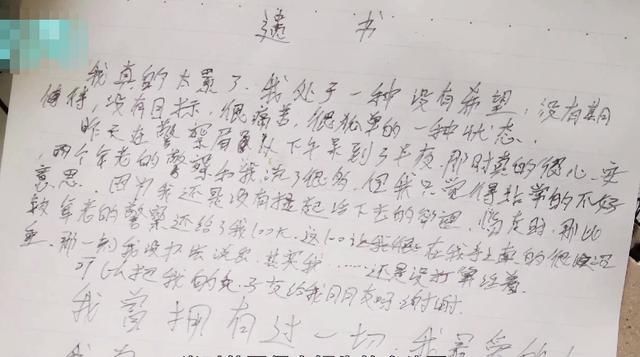 遗书
我真的太累了，我处于一种没有希望，没有期
待，没有目标，很痛苦，很孤单的一种状态.
昨天在警察局从下午呆到了半夜，那时真的很心
，两个年老的警察和我说了很多，但我只觉得非常的不好
意思. 因为我还是没有提起活下去的欲望，离开时，那比
较年老的警察还给了我100元，这100让我 在我手上真的很
，那一刻我没办法说出，其实我……还是没打算活着
可以把我的 子交给我月月友吗谢谢.
我曾拥有过一切，我
我